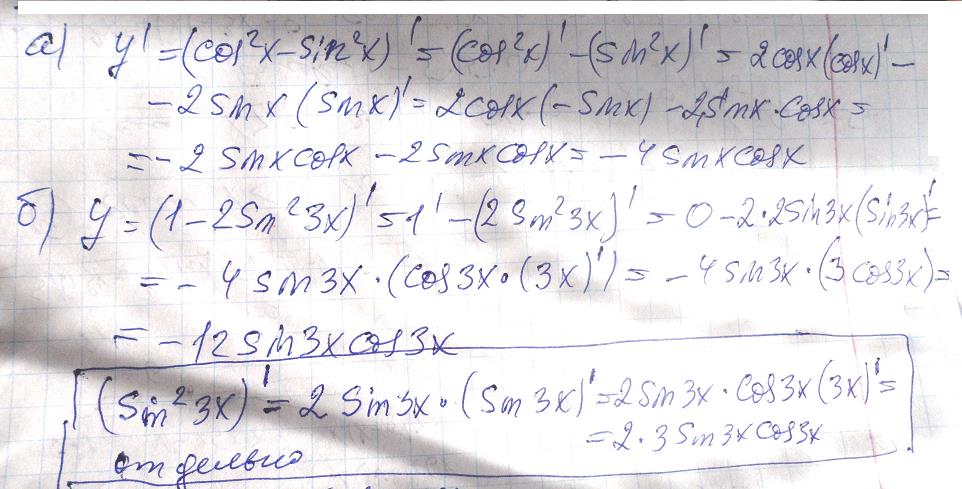 а) y' = (cos²x – sin²x)' = (cos²x)' – (sin²x)' = 2cosx(cosx)' –
– 2 sin x (sin x)' = 2cosx(–sinx) – 2sinx·cosx =
= – 2 sinxcosx – 2sinxcosx = – 4 sinxcosx
б) y = (1 – 2Sin²3x)' = 1' – (2 Sin²3x)' = 0 – 2·2sin3x(Sin3x)' =
= – 4 sin 3x · (cos3x · (3x)') = – 4 sin3x · (3 cos3x) =
= – 12 sin3x cos3x
(Sin²3x)' = 2 Sin3x · (Sin 3x)' = 2Sin 3x · cos3x (3x)' =
= 2·3 Sin 3x cos3x
отдельно